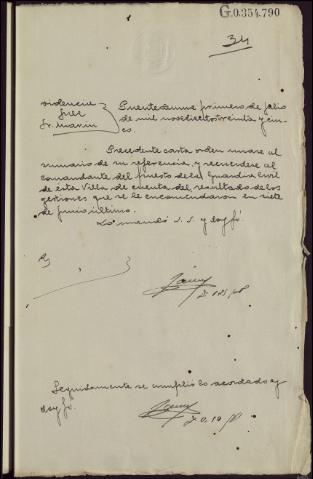 G.0.354.790
34
Providencia
Juez
Sr. Marin
Puentedeume primero de Julio
de mil novecientos treinta y cin-
co.
Precedente carta orden unase al
sumario de su referencia, y recuerdese al
Comandante del puesto de la Guardia Civil
de esta Villa dé cuenta del resultado de las
gestiones que se le encomendaron en siete
de Junio último.
Lo mandó S. S. y doy fé.
Seguidamente se cumplió lo acordado y
doy fé.